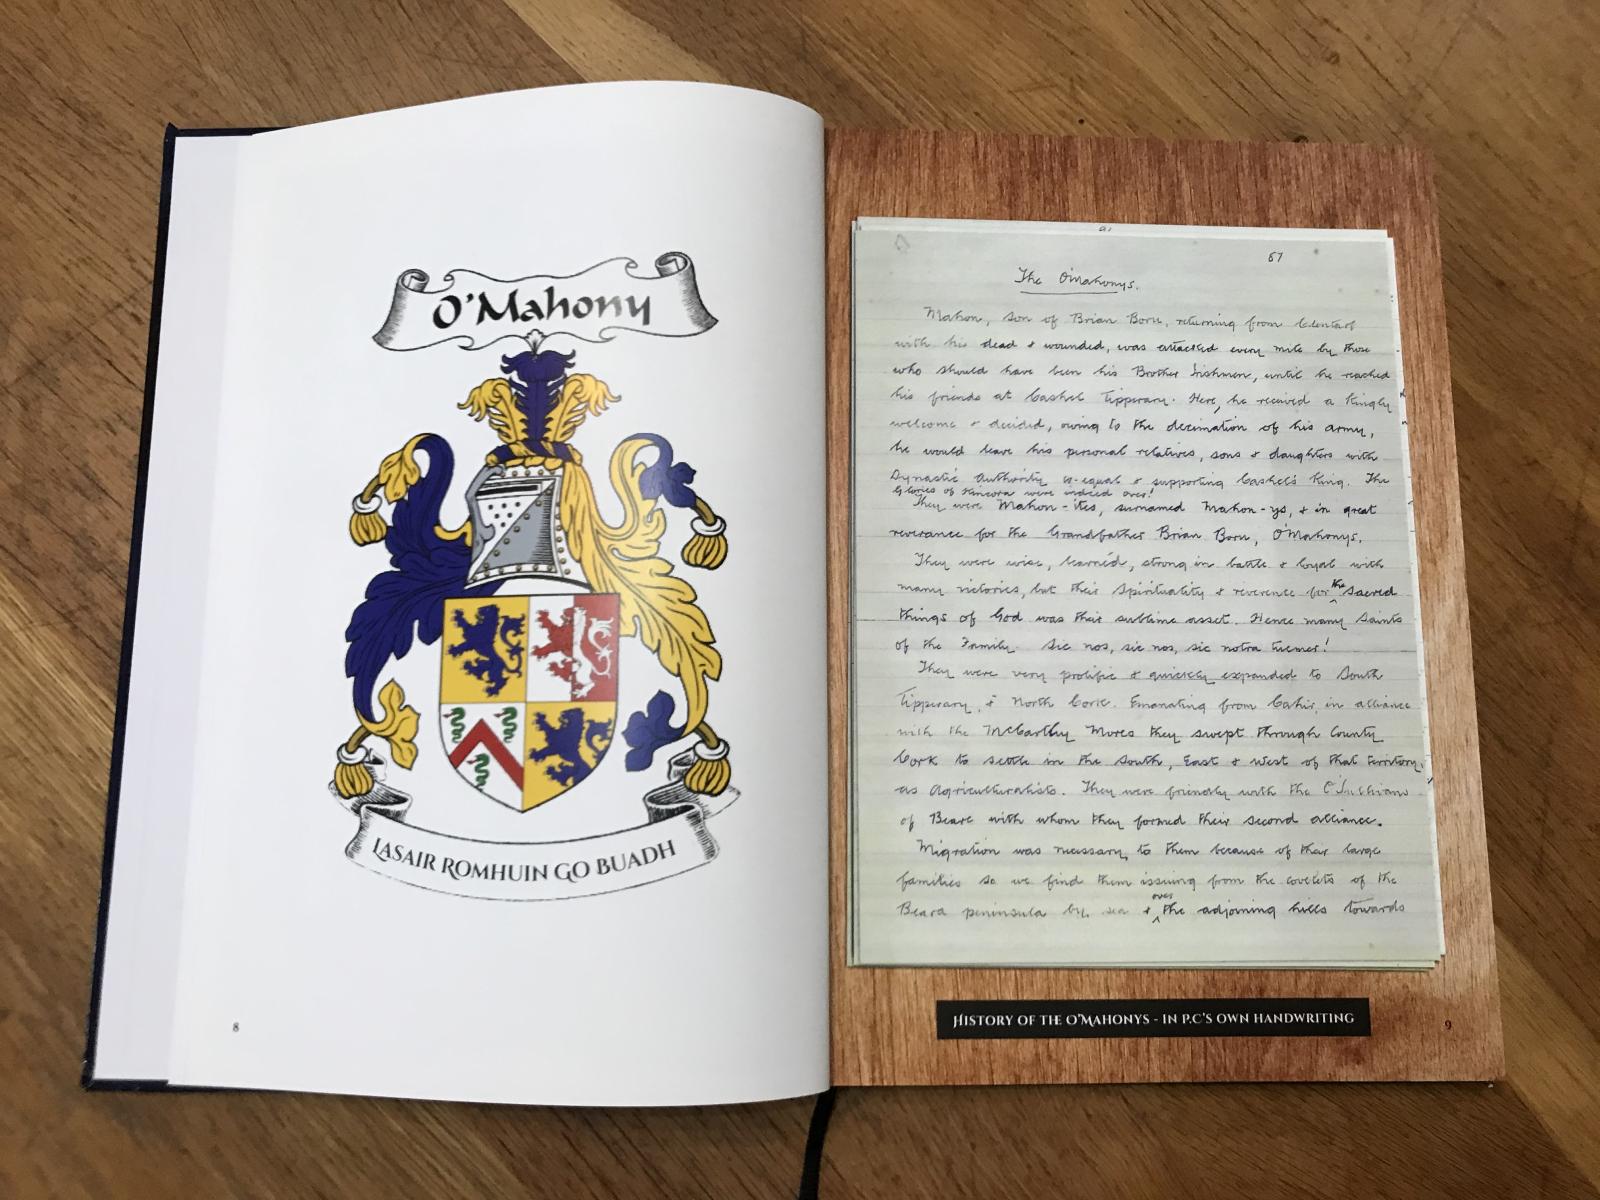 O'Mahony
LASAIR ROMHUIN GO BUADH
8
67
The O'Mahonys.
Mahon, son of Brian Boru, returning from Clontarf
with his dead & wounded, was attacked every mile by those
who should have been his Brother Irishmen, until he reached
his friends at Cashel Tipperary. Here, he received a Kingly
welcome & decided, owing to the decimation of his army,
he would leave his personal relatives, sons & daughters with
Dynastic Authority co-equal & supporting Cashel's King. The
Glories of Kincora were indeed over!
They were Mahon-ites, surnamed Mahon-ys, & in great
reverance for the Grandfather Brian Boru, O'Mahonys.
They were wise, learned, strong in battle & loyal with
many victories, but their Spirituality & reverence for the sacred
things of God was their sublime asset. Hence many Saints
of the Family. Sic nos, sic nos, sic notra tuemer!
They were very prolific & quickly expanded to South
Tipperary, & North Cork. Emanating from Cahir, in alliance
with the McCarthy Mores they swept through County
Cork to settle in the South, East & West of that territory,
as Agriculturalists. They were friendly with the O'Sullivans
of Beare with whom they formed their second alliance.
Migration was necessary to them because of their large
families so we find them issuing from the covelets of the
Beara peninsula by sea & over the adjoining hills towards
HISTORY OF THE O'MAHONYS - IN P.C'S OWN HANDWRITING
9